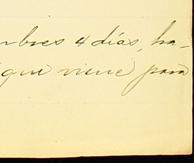 mbres 4 días, ha-
(que viene para